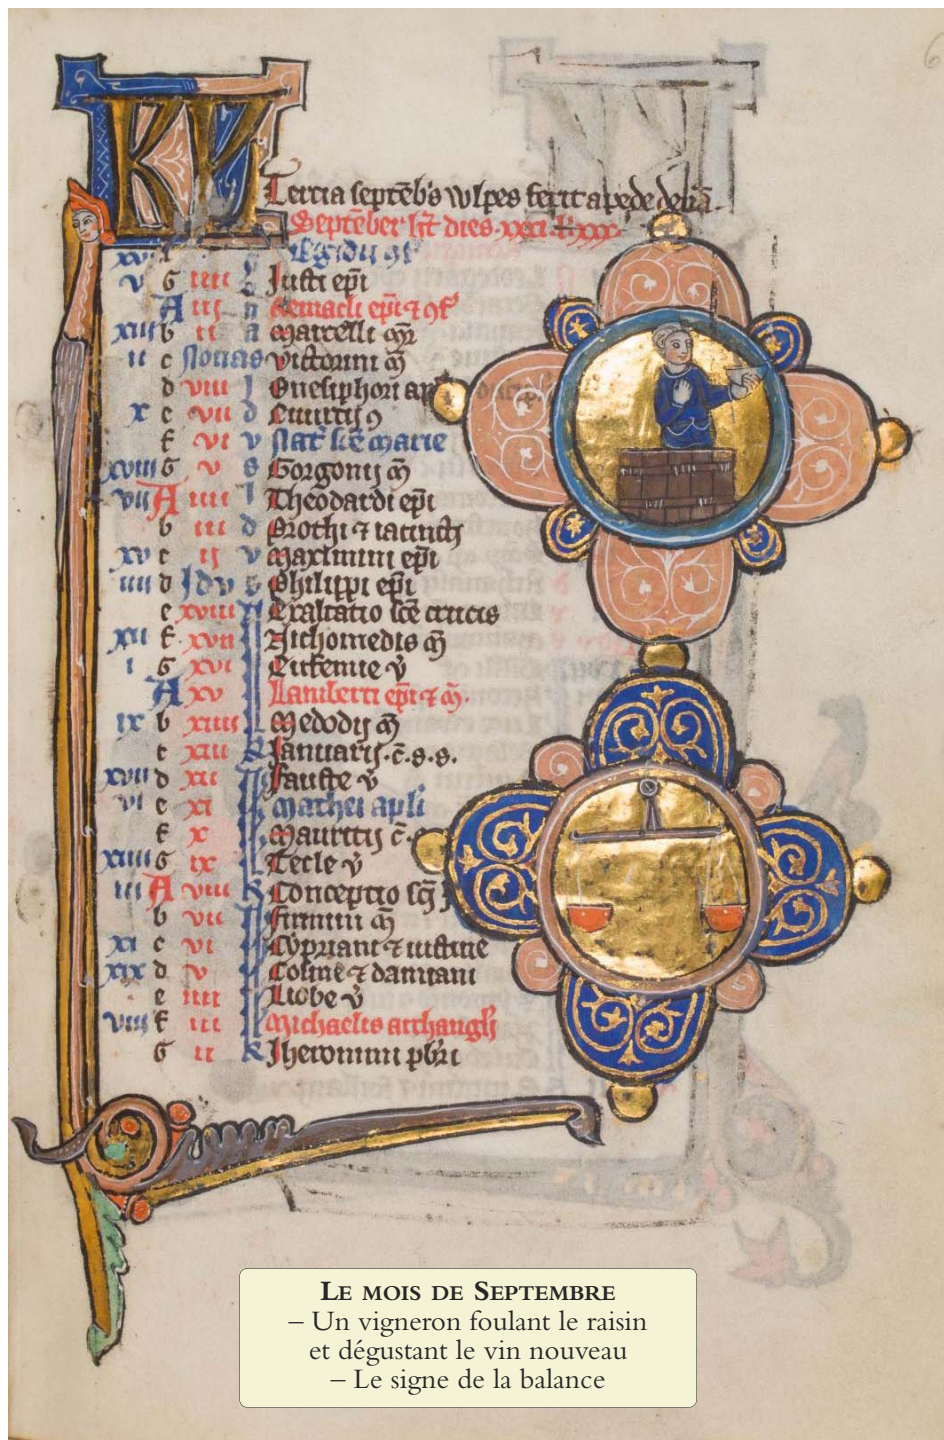 6
KL
Tercia septēb's vulpes ferit a pede denā.
Septēber ht dies xxx l' xxx
xvi f Egidii
v G iiii Iusti ep̄i
A iii Remacli ep̄i ⁊ 9f'
xiii b ii Marcelli m̄r
ii c Nonas Victorini m̄
d viii I Onesiphori ap
x e vii d Euurtij 9
f vi v Nat' sc̄e Marie
xviii G v s Gorgonij m̄
vii A iiii I Theodardi ep̄i
b iii d Prothi ⁊ iacincti
xv c ii v Maximini ep̄i
iiii d Idv s Philippi ep̄i
e xviii Exaltatio sc̄e crucis
xii f xvii Nichomedis m̄
i G xvi Eufemie v̄
A xv Lamberti ep̄i ⁊ m̄.
ix b xiiii Medodij m̄
c xiii Ianuarij. c̄. s. s.
xvii d xii Fauste v̄
vi e xi Mathei apl'i
f x Mauritij c̄
xiiii G ix Tecle v̄
iii A viii K Conceptio sc̄i J
b vii Firmini m̄
xi c vi Cypriani ⁊ iustine
xix d v Cosme ⁊ damiani
e iiii Liobe v̄
viii f iii Michaelis archangl'i
G ii K Iheronimi pbr̄i
LE MOIS DE SEPTEMBRE
– Un vigneron foulant le raisin
et dégustant le vin nouveau
– Le signe de la balance